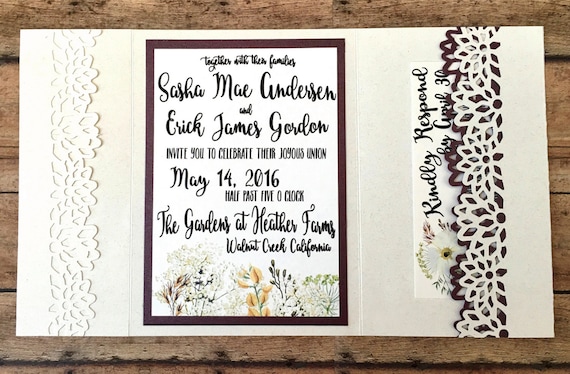 together with their families
Sasha Mae Andersen
and
Erick James Gordon
INVITE YOU TO CELEBRATE THEIR JOYOUS UNION
May 14, 2016
HALF PAST FIVE O CLOCK
The Gardens at Heather Farms
Walnut Creek California
Kindly Respond
by April 30